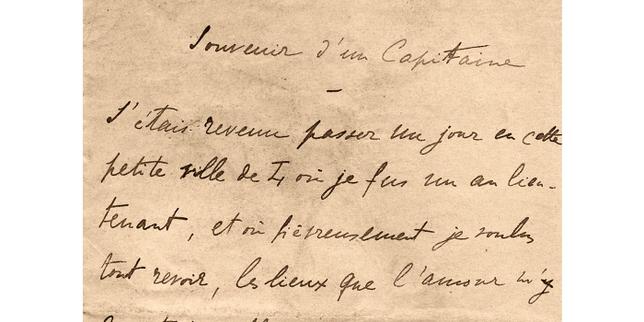 Souvenir d'un Capitaine
–
J'étais revenu passer un jour en cette
petite ville de Z, où je fus un an lieu-
tenant, et où fiévreusement je voulus
tout revoir, les lieux que l'amour m'y